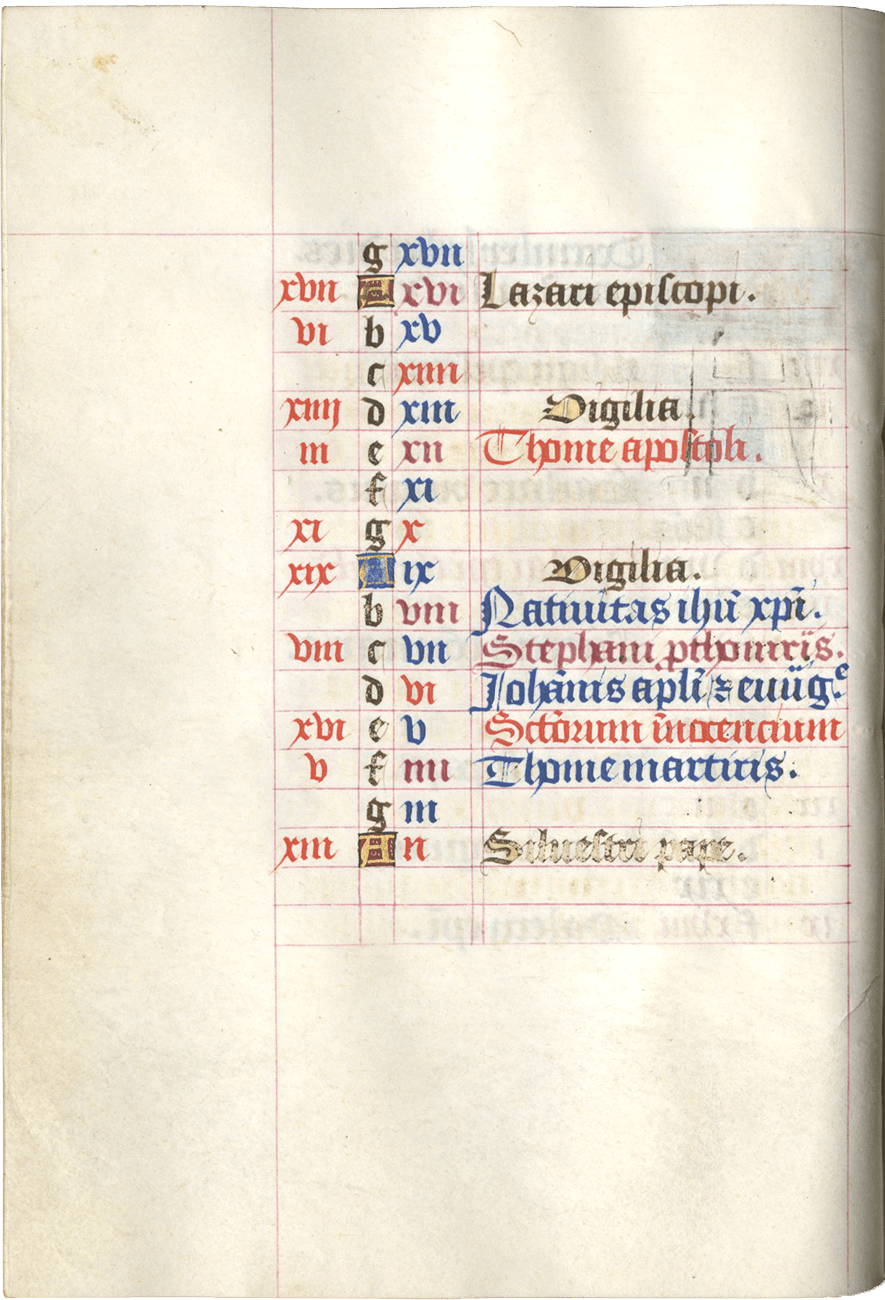 g xvii
xvii A xvi Lazari episcopi.
vi b xv
c xiiii
xiiij d xiii Vigilia.
iii e xii Thome apostoli.
f xi
xi g x
xix A ix Vigilia.
b viii Natiuitas ihū xpī.
viii c vii Stephani pthomr̄is.
d vi Johānis aplī ⁊ euūg.e
xvi e v Sctōrum īnocencium
v f iiii Thome martiris.
g iii
xiii A ii Siluestri pape.